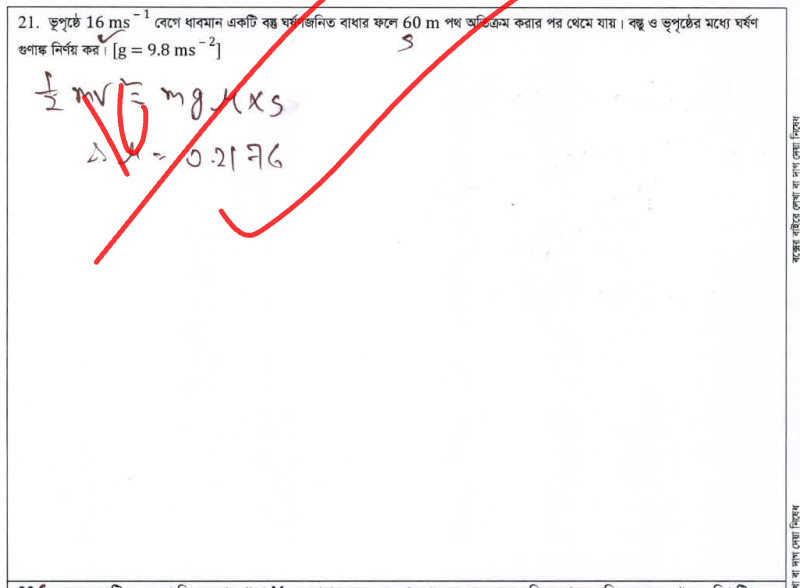 21. ভূপৃষ্ঠে 16 ms⁻¹ বেগে ধাবমান একটি বস্তু ঘর্ষণজনিত বাধার ফলে 60 m পথ অতিক্রম করার পর থেমে যায়। বস্তু ও ভূপৃষ্ঠের মধ্যে ঘর্ষণ
গুণাঙ্ক নির্ণয় কর। [g = 9.8 ms⁻²]
S
½ mv² = mgμ × s
μ = 0.2176
বক্সের বাইরে লেখা বা দাগ দেয়া নিষেধ
বা দাগ দেয়া নিষেধ